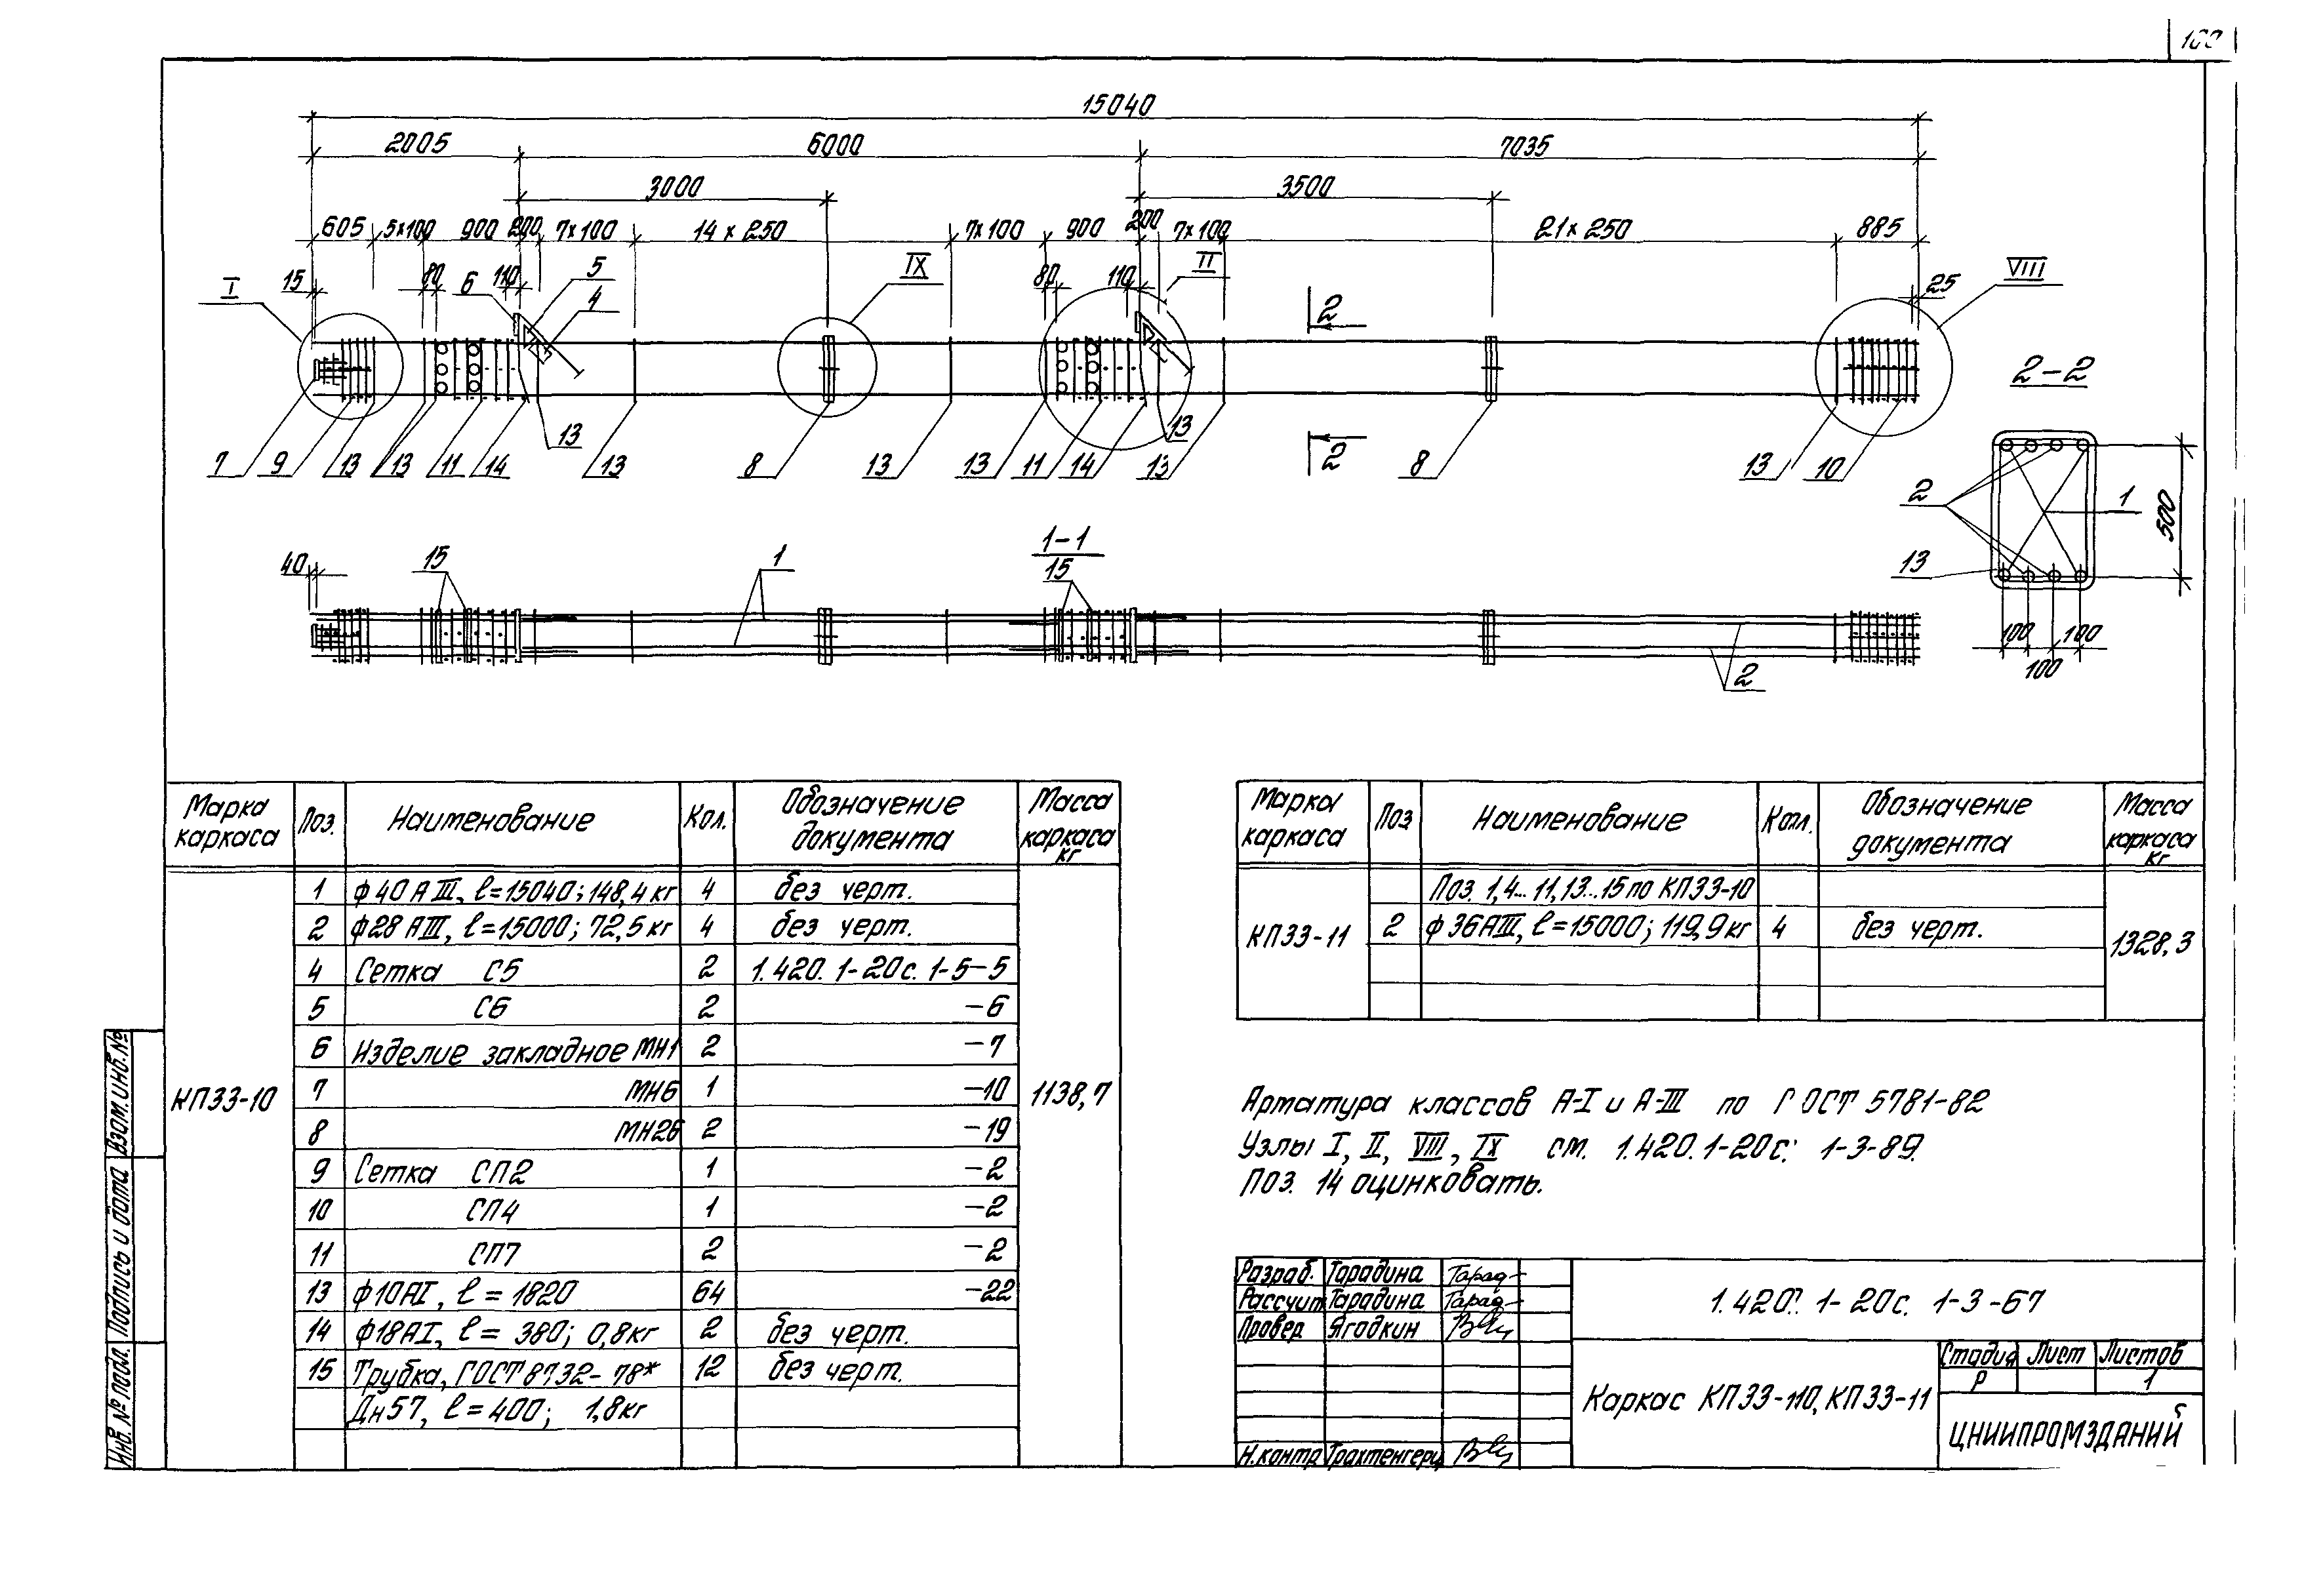 100
15040
2005 6000 7035
3000 3500
605 5×100 900 200 7×100 14×250 7×100 900 200 7×100 21×250 885
I 15 80 6 110 5 4 IX 80 110 II 25 VIII
2
2-2
7 9 13 13 11 14 13 13 8 13 13 11 14 13 13 2 8 13 10
2 1 500 13
100 100
100
1-1
40 15 1 15 2
Марка каркаса Поз. Наименование Кол. Обозначение документа Масса каркаса кг
КП33-10 1138,7
1 ф40АIII, ℓ=15040; 148,4кг 4 без черт.
2 ф28АIII, ℓ=15000; 72,5кг 4 без черт.
4 Сетка С5 2 1.420.1-20с. 1-5-5
5 С6 2 -6
6 Изделие закладное МН1 2 -7
7 МН6 1 -10
8 МН26 2 -19
9 Сетка СП2 1 -2
10 СП4 1 -2
11 СП7 2 -2
13 ф10АI, ℓ=1820 64 -22
14 ф18АI, ℓ=380; 0,8кг 2 без черт.
15 Трубка, ГОСТ 8732-78* 12 без черт.
Дн57, ℓ=400; 1,8кг
Марка каркаса Поз Наименование Кол. Обозначение документа Масса каркаса кг
КП33-11 1328,3
Поз. 1,4...11,13...15 по КП33-10
2 ф36АIII, ℓ=15000; 119,9кг 4 без черт.
Арматура классов А-I и А-III по ГОСТ 5781-82
Узлы I, II, VIII, IX см. 1.420.1-20с. 1-3-89.
Поз. 14 оцинковать.
Разраб. Тарадина Тарад
Рассчит Тарадина Тарад
Провер Ягодкин
Н.контр Трахтенгерц
1.420.1-20с. 1-3-67
Каркас КП33-110, КП33-11
Стадия Лист Листов
Р 1
ЦНИИПРОМЗДАНИЙ
Взам.инв.№
Подпись и дата
Инв.№ подл.